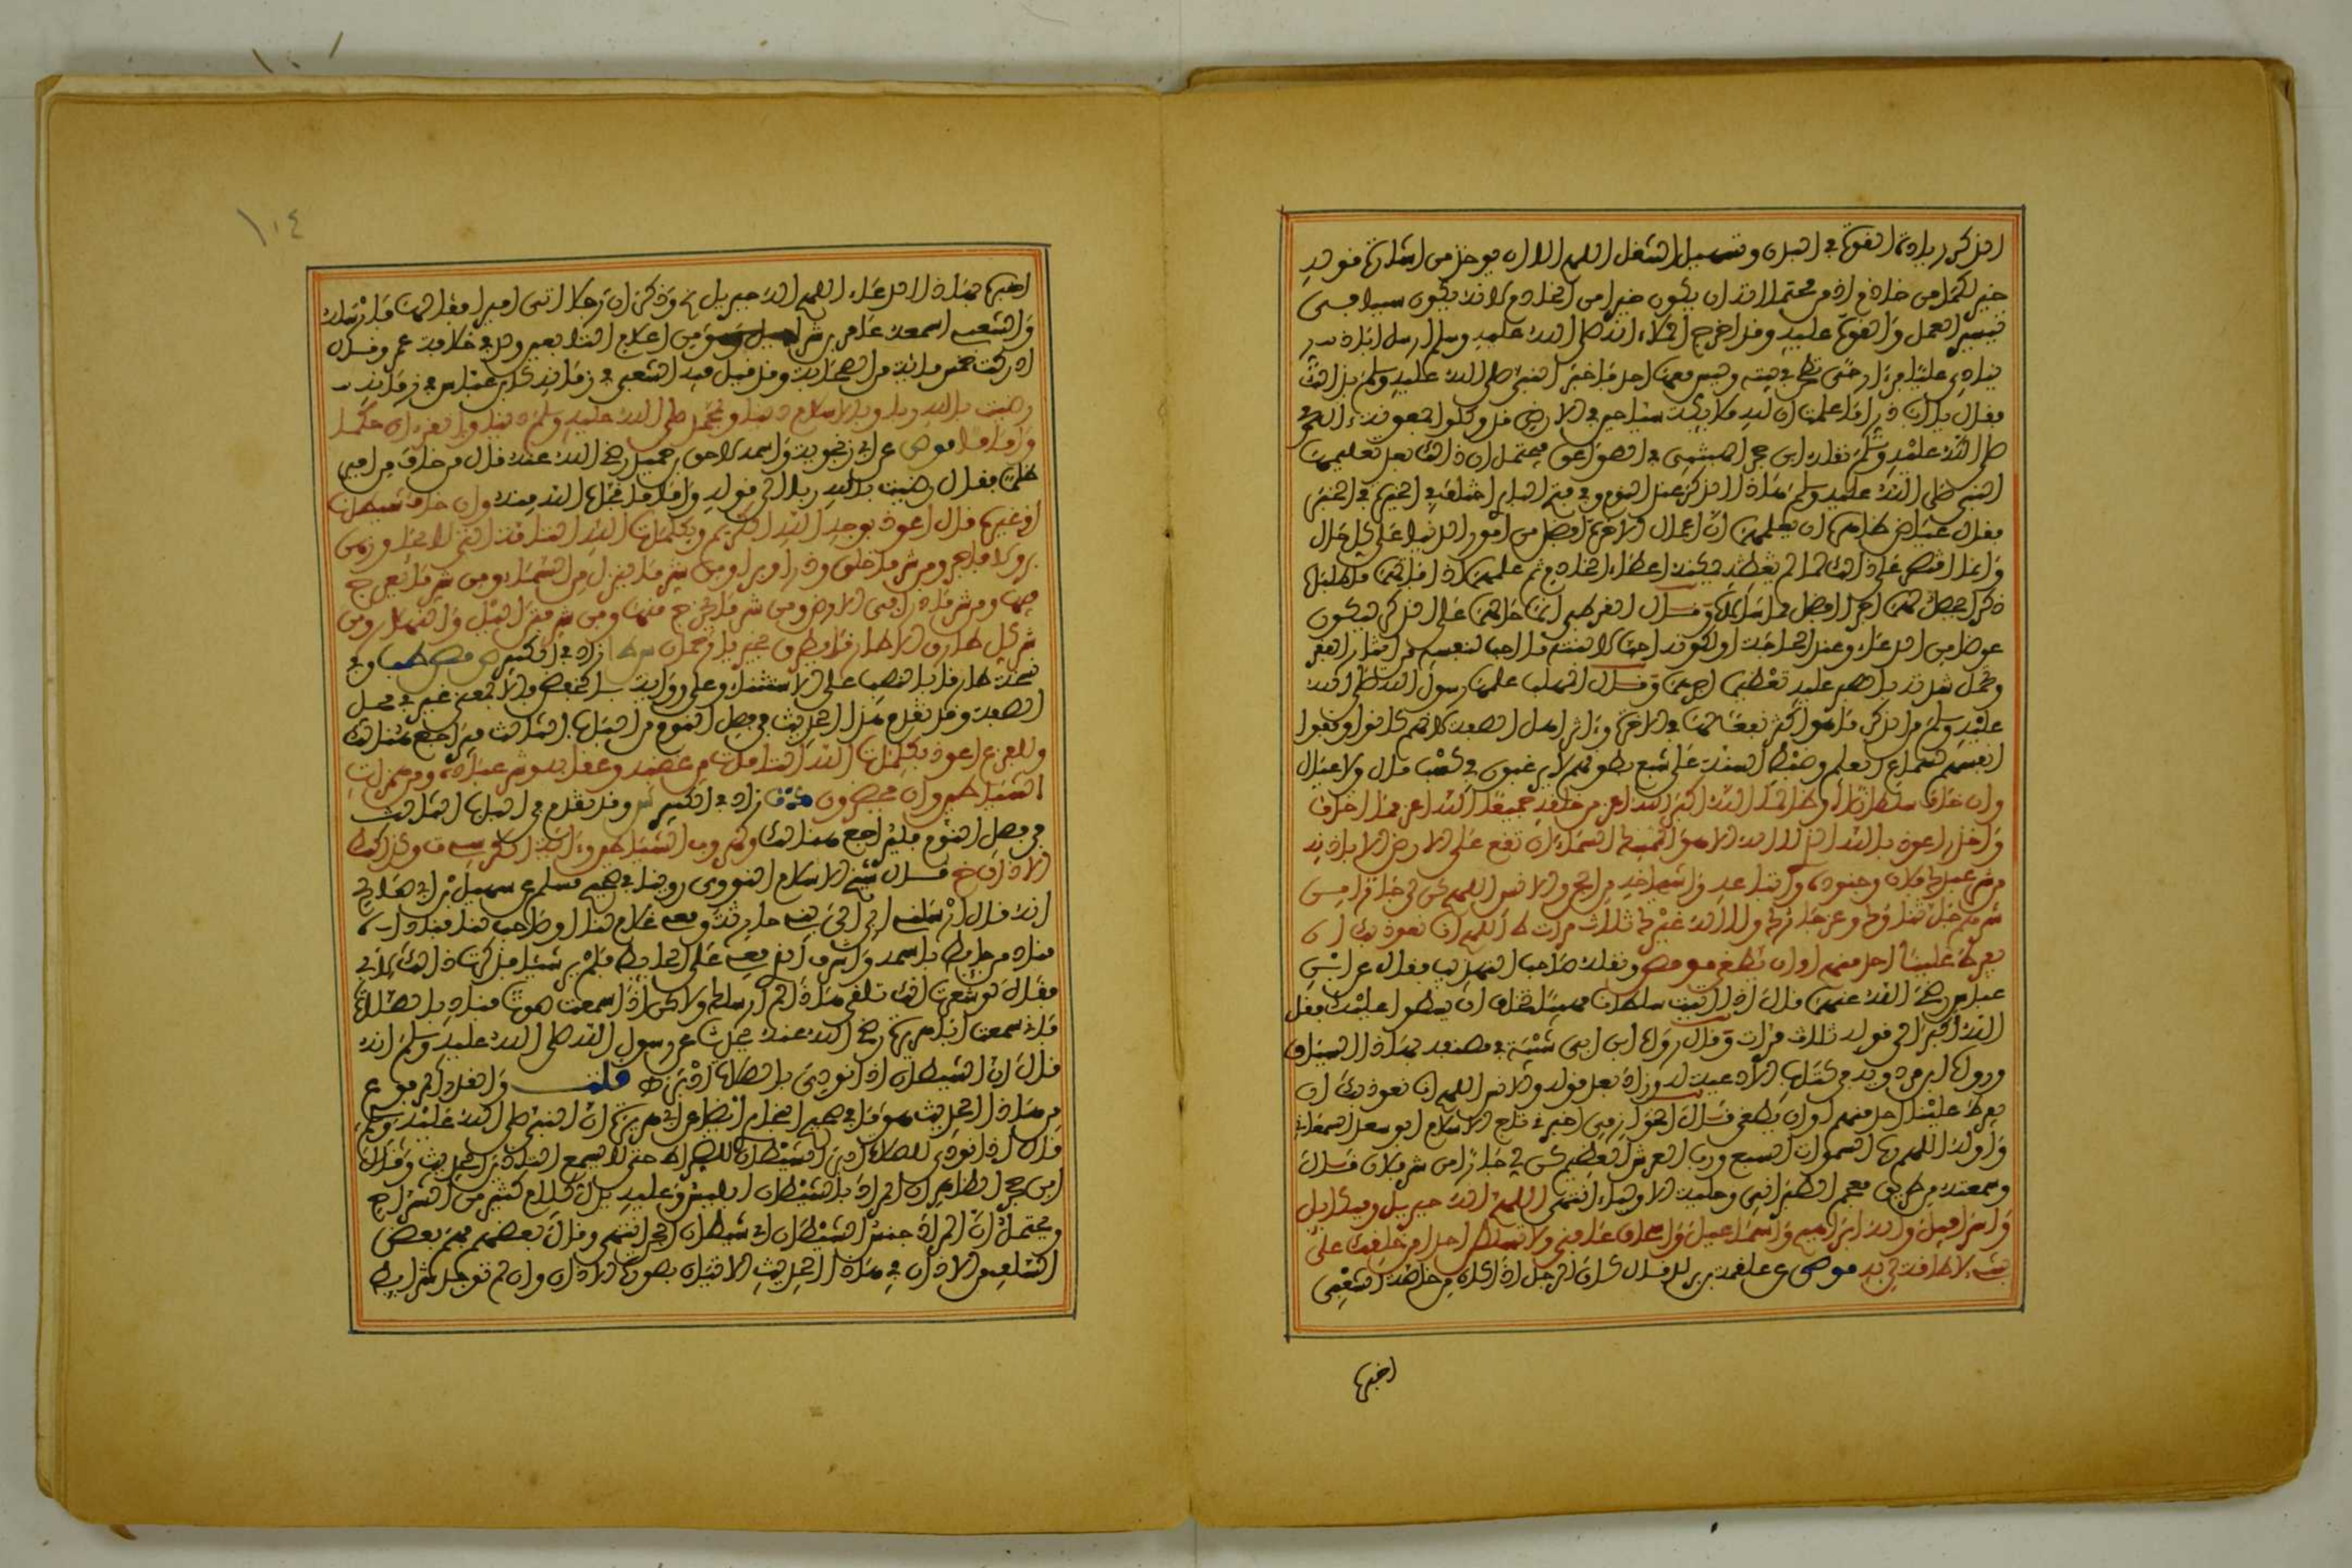 الذكر زيادة القوة في البدن وتسهيل الشغل اللهم الا ان يوخذ من اشارة قوله
خير لكما من خادم اذ من محتملاته ان يكون خيرا من الخادم لانه يكون سببا في
تيسير العمل والقوة عليه وقد اخرج الحلاء انه صلى الله عليه وسلم ارسل ابا ذر
ينادي عليا فرأى رحى تطحن في بيته وليس معها احد فاخبر النبي صلى الله عليه وسلم بذلك
فقال يا ابا ذر اما علمت ان لله ملائكة سياحين في الارض قد وكلوا بمعونة آل محمد
صلى الله عليه وسلم نقله ابن حجر الهيتمي في الصواعق فيحتمل ان ذلك بعد تعليمها
النبي صلى الله عليه وسلم هذا الذكر عند النوم وفي فتح الباري اختلف في الخيرية في الخبر
فقال عياض ظاهره ان يعلمها ان اعمال الاخرة افضل من امور الدنيا على كل حال
وانما اقتصر على ذلك لما لم يمكنه اعطاء الخادم ثم علمها اذ فاتها ما طلبا
ذكرا يحصل لهما اجرا افضل مما سألاه وقال القرطبي انما احالهما على الذكر ليكون
عوضا من الدعاء وعند الحاجة او لكونه احب لابنته ما احب لنفسه من ايثار الفقر
وتحمل شدته بالصبر عليه تعظيما لاجرها وقال المهلب علمها رسول الله صلى الله
عليه وسلم من الذكر ما هو اكثر نفعا لها في الاخرة وآثر اهل الصفة لانهم كانوا وقفوا
انفسهم لسماع العلم وضبط السنة على شبع بطونهم لا يرغبون في كسب مال ولا عيال
وان خاف سلطانا او ظالما الله اكبر الله اعز من خلقه جميعا الله اعز مما اخاف
واحذر اعوذ بالله الذي لا اله الا هو الممسك السماء ان تقع على الارض الا باذنه
من شر عبدك فلان وجنوده واتباعه واشياعه من الجن والانس اللهم كن لي جارا من
شرهم جل ثناؤك وعز جارك ولا اله غيرك ثلاث مرات ط اللهم انا نعوذ بك ان
يفرط علينا احد منهم او ان يطغى مو مص ونقله صاحب الترغيب فقال عن ابن
عباس رضي الله عنهما قال اذا اتيت سلطانا مهيبا تخاف ان يسطو عليك فقل
الله اكبر الى قوله ثلاث مرات وقال رواه ابن ابي شيبة في مصنفه بهذا السياق
ورواه ابن مردويه في كتاب الادعية له وزاد بعد قوله والانس اللهم انا نعوذ بك ان
يفرط علينا احد منهم او ان يطغى قال الخوارزمي اخبرني تاج الاسلام ابو سعد السمعاني
واوله اللهم رب السموات السبع ورب العرش العظيم كن لي جارا من شر فلان قال
وسمعته من طريق معجم الطبراني وحلية الاولياء انتهى اللهم اله جبريل وميكائيل
واسرافيل واله ابراهيم واسماعيل واسحاق عافني ولا تسلطن احدا من خلقك علي
بشيء لا طاقة لي به مو مص عن علقمة بن مرثد قال كان الرجل اذا كان من خاصة الشعبي
اخبره
١٠٤
اخبره بهذا الدعاء اللهم اله جبريل الخ وذكر ان رجلا اتى اميرا فقالها فارسله
والشعبي اسمه عامر بن شراحيل وهو من اعلام التابعين ولد في خلافة عمر وقال
ادركت خمس مائة من الصحابة وقد قيل فيه الشعبي في زمانه كابن عباس في زمانه
رضيت بالله ربا وبالاسلام دينا وبمحمد صلى الله عليه وسلم نبيا وبالقرءان حكما
واماما مو مص عن ابي مجلز واسمه لاحق بن حميد رضي الله عنه قال من خاف من امير
ظلما فقال رضيت بالله ربا الى قوله واماما نجاه الله منه وان خاف شيطانا
او غيره قال اعوذ بوجه الله الكريم وبكلمات الله التامة التي لا يجاوزهن
بر ولا فاجر من شر ما خلق وذرأ وبرأ ومن شر ما ينزل من السماء ومن شر ما يعرج
فيها ومن شر ما ذرأ في الارض ومن شر ما يخرج منها ومن شر فتن الليل والنهار ومن
شر كل طارق الا طارقا يطرق بخير يا رحمان س ط زاد في الكبير مص وفي
نسخة طارقا بالنصب على الاستثناء وعلى رواية بالخفض فالا بمعنى غير في محل
الصفة وقد تقدم هذا الحديث في فصل النوم من الباب الثالث فيراجع هنالك
وللفزع اعوذ بكلمات الله التامة من غضبه وعقابه وشر عباده ومن همزات
الشياطين وان يحضرون زاد في الكبير وقد تقدم في الباب الثالث
في فصل النوم فليراجع هنالك ولهروب الشياطين ءاية الكرسي ت وكذلك
الاذان م قال شيخ الاسلام النووي روينا في صحيح مسلم عن سهيل بن ابي صالح
انه قال ارسلني ابي الى بني حارثة ومعي غلام لنا او صاحب لنا فناداه
مناد من حائط باسمه واشرف الذي معي على الحائط فلم ير شيئا فذكرت ذلك لابي
فقال لو شعرت انك تلقى هذا لم ارسلك ولكن اذا سمعت صوتا فناد بالصلاة
فاني سمعت ابا هريرة رضي الله عنه يحدث عن رسول الله صلى الله عليه وسلم انه
قال ان الشيطان اذا نودي بالصلاة ادبر ط قلت والقدر المرفوع
من هذا الحديث هو ما في صحيح البخاري ايضا عن ابي هريرة ان النبي صلى الله عليه وسلم
قال اذا نودي للصلاة ادبر الشيطان له ضراط حتى لا يسمع التاذين الحديث وقال
ابن حجر الظاهر ان المراد بالشيطان ابليس وعليه يدل كلام كثير من الشراح
ويحتمل ان المراد جنس الشيطان اي شيطان الجن انتهى وقال بعضهم فهم بعض
السلف من الاذان في هذا الحديث الاتيان بصورة الاذان وان لم توجد شرائط